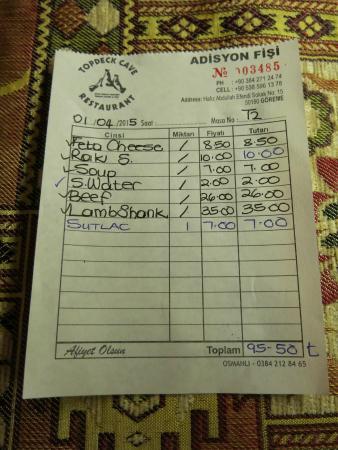 TOPDECK CAVE
RESTAURANT
ADİSYON FİŞİ
№ 003485
PH : +90 384 271 24 74
CELL : +90 538 596 13 76
Address: Hafız Abdullah Efendi Sokak No: 15
50180 GÖREME
01/04/2015 Saat : Masa No : T2
Cinsi Miktarı Fiyatı Tutarı
Feta Cheese / 8.50 8.50
Rakı S. / 10.00 10.00
Soup / 7.00 7.00
S. Water / 2.00 2.00
Beef / 26.00 26.00
Lamb Shank / 35.00 35.00
SUTLAC 1 7.00 7.00
Afiyet Olsun Toplam 95-50 t
OSMANLI - 0384 212 84 65